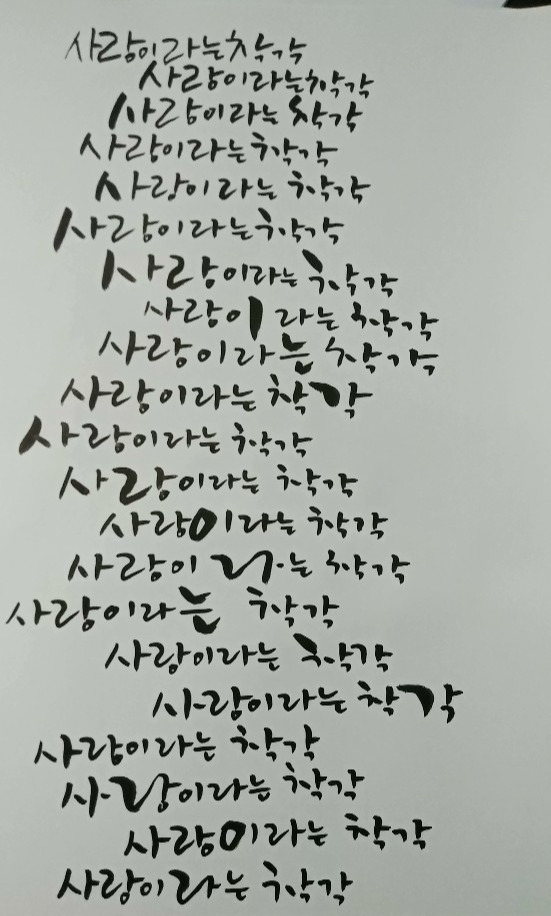 사랑이라는착각
사랑이라는착각
사랑이라는 착각
사랑이라는착각
사랑이라는 착각
사랑이라는착각
사랑이라는 착각
사랑이 라는 착각
사랑이라는 착각
사랑이라는 착각
사랑이라는 착각
사랑이라는 착각
사랑이라는 착각
사랑이 라는 착각
사랑이라는 착각
사랑이라는 착각
사랑이라는 착각
사랑이라는 착각
사랑이라는 착각
사랑이라는 착각
사랑이라는 착각